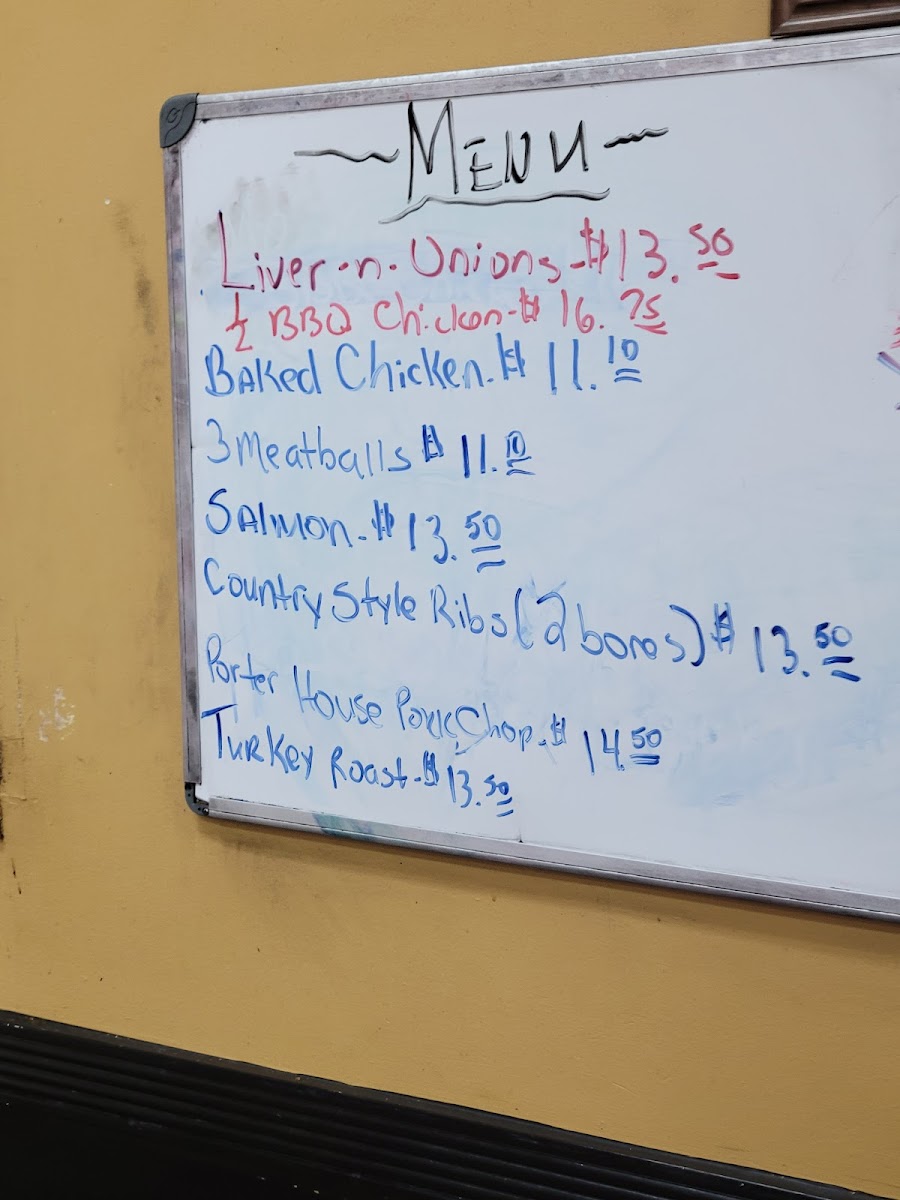 ~Menu~
Liver-n-Unions-$13.50
½ BBQ Chicken-$16.75
Baked Chicken.$11.10
3 Meatballs $11.10
Salmon-$13.50
Country Style Ribs (2 bones) $13.50
Porter House Pork Chop.$14.50
Turkey Roast-$13.50